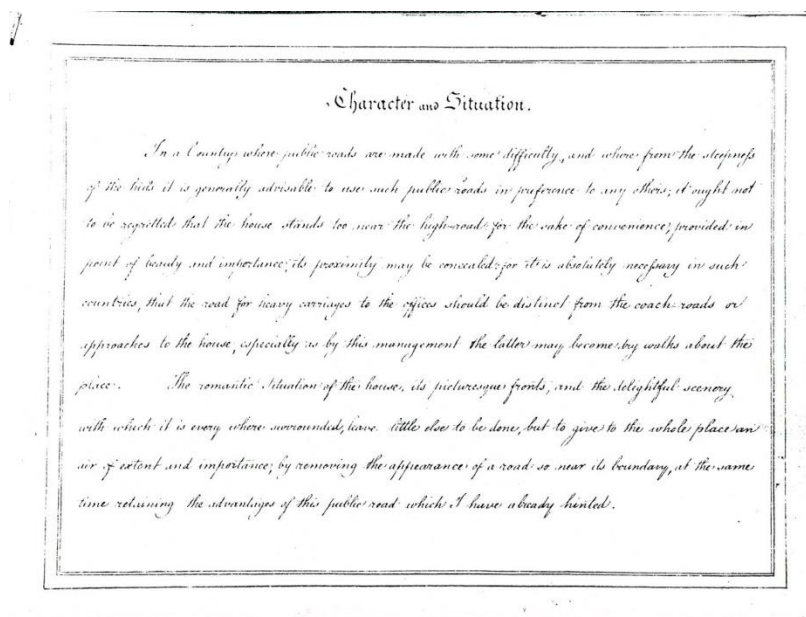 Character and Situation.
In a Country where public roads are made with some difficulty, and where from the steepness
of the hills it is generally advisable to use such public roads in preference to any others; it ought not
to be regretted that the house stands too near the high-road for the sake of convenience, provided in
point of beauty and importance, its proximity may be concealed; for it is absolutely necessary in such
countries, that the road for heavy carriages to the offices should be distinct from the coach-roads or
approaches to the house, especially as by this management the latter may become dry walks about the
place. The romantic situation of the house, its picturesque fronts, and the delightful scenery
with which it is every where surrounded, leave little else to be done, but to give to the whole place an
air of extent and importance; by removing the appearance of a road so near its boundary, at the same
time retaining the advantages of this public road which I have already hinted.